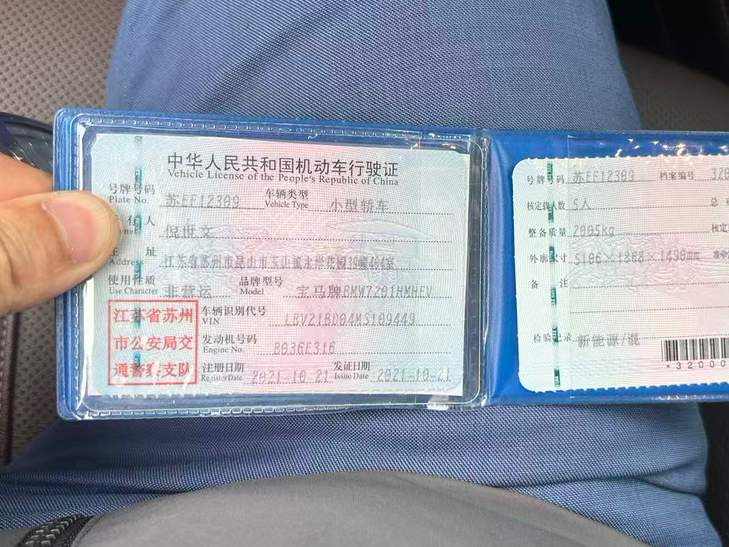 中华人民共和国机动车行驶证
Vehicle License of the People's Republic of China
号牌号码 苏EF12309 车辆类型 小型轿车
Plate No. Vehicle Type
有人 倪世文
址
Address 江苏省苏州市昆山市玉山镇水岸花园
使用性质 非营运 品牌型号 宝马牌BMW7201HMHEV
Use Character Model
江苏省苏州
市公安局交
通警察支队
车辆识别代号 LBV21BD04MS109449
VIN
发动机号码 8036E316
Engine No.
注册日期 2021-10-21 发证日期 2021-10-21
Register Date Issue Date
号牌号码 苏EF12309 档案编号 320
核定载人数 5人 总
整备质量 2005kg 核定
外廓尺寸 5106×1868×1490mm 准牵
检验记录 新能源/混
*32000